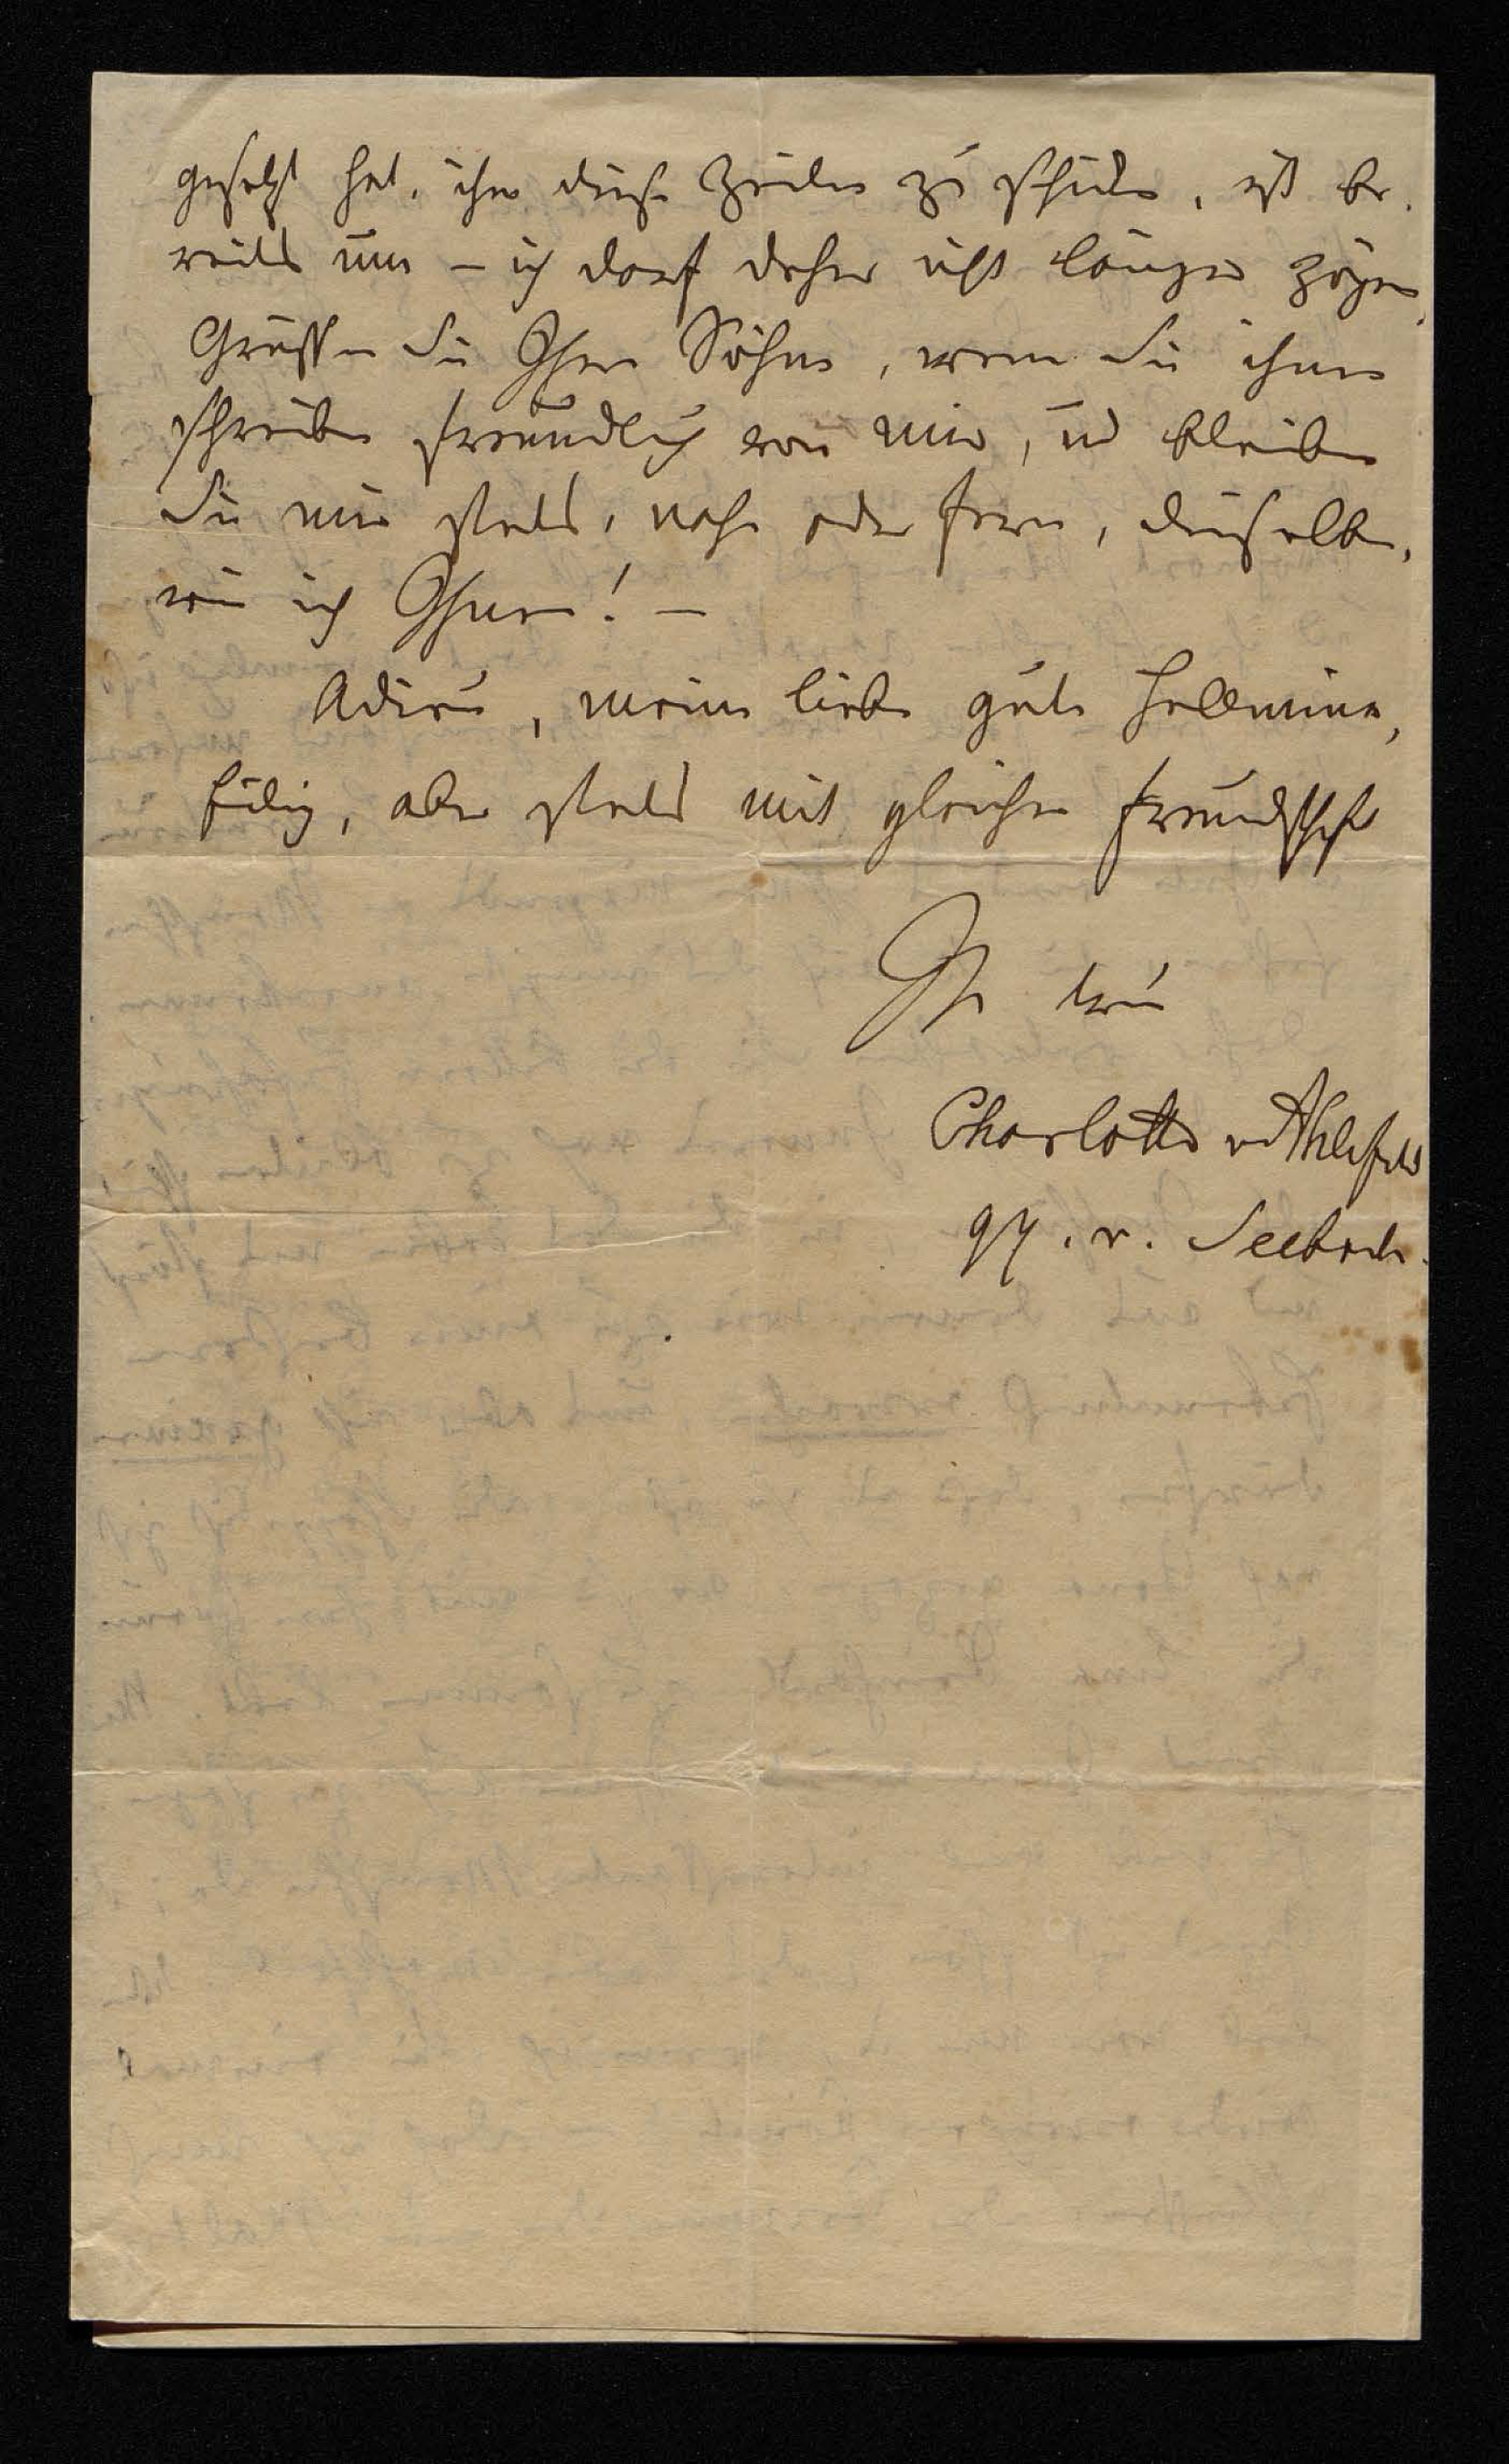 gesetzt hat, ihr diese Zeilen zu schicken, ist be-
reits um – ich darf daher nicht länger zögern.
Grüssen Sie Ihre Söhne, wenn Sie ihnen
schreiben freundlich von mir, und bleiben
Sie mir stets, nahe oder fern, dieselbe,
wie ich Ihnen! –
Adieu, meine liebe gute Hellmina,
eilig, aber stets mit gleicher Freundschaft
Ihre treue
Charlotte v Ahlefeld
geb. v. Seebach.